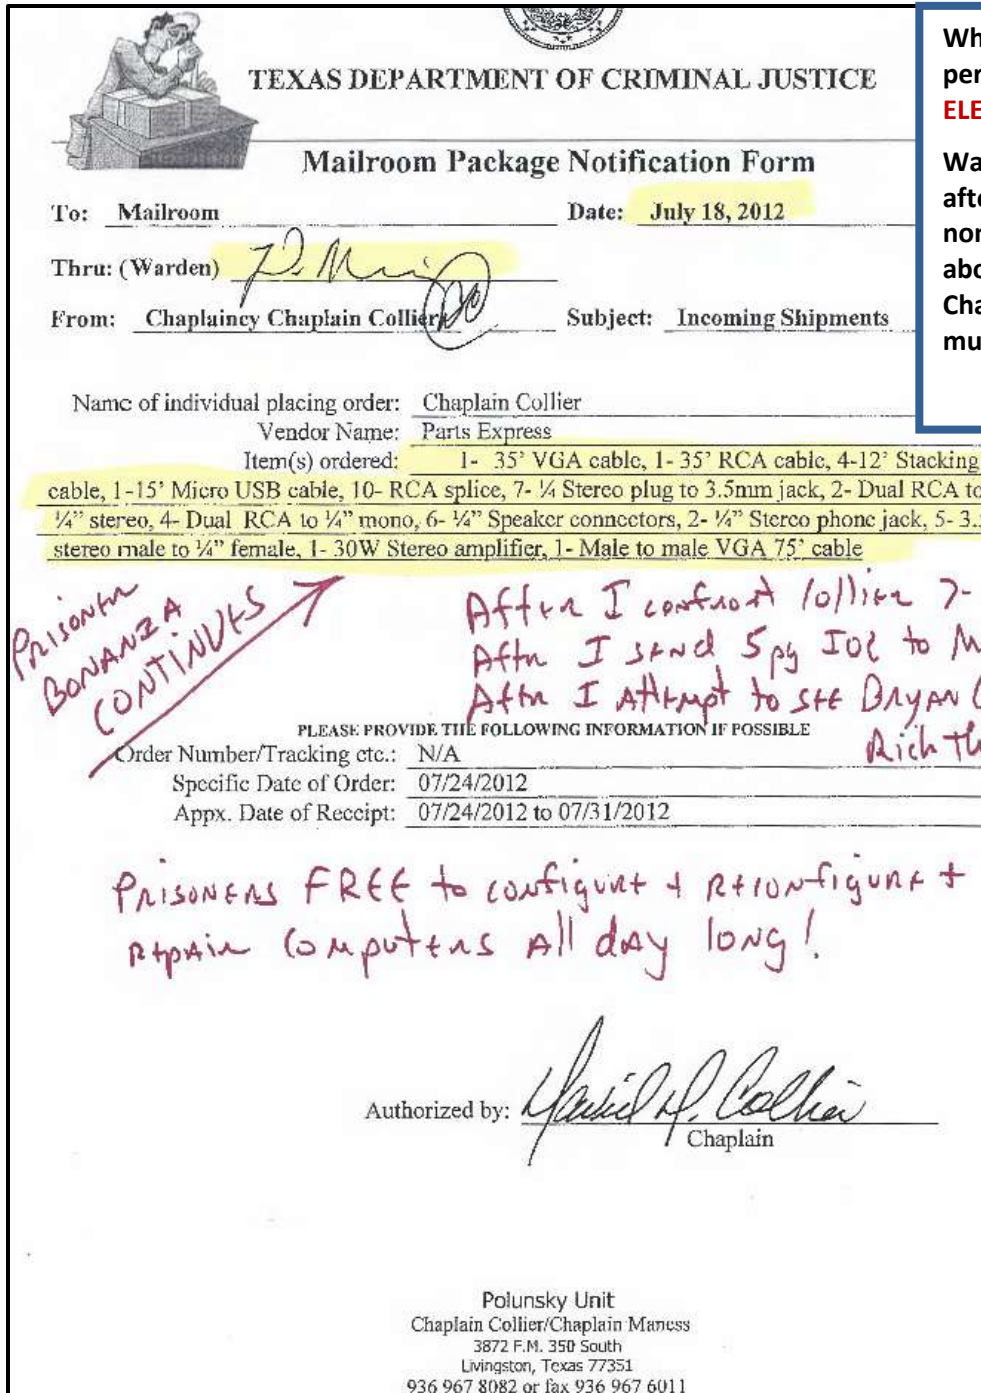 TEXAS DEPARTMENT OF CRIMINAL JUSTICE
Mailroom Package Notification Form
To: Mailroom
Date: July 18, 2012
Thru: (Warden)
From: Chaplaincy Chaplain Collier
Subject: Incoming Shipments
Name of individual placing order: Chaplain Collier
Vendor Name: Parts Express
Item(s) ordered: 1- 35' VGA cable, 1- 35' RCA cable, 4-12' Stacking
cable, 1-15' Micro USB cable, 10- RCA splice, 7- ¼ Stereo plug to 3.5mm jack, 2- Dual RCA to
¼" stereo, 4- Dual RCA to ¼" mono, 6- ¼" Speaker connectors, 2- ¼" Stereo phone jack, 5- 3.
stereo male to ¼" female, 1- 30W Stereo amplifier, 1- Male to male VGA 75' cable
PRISONER
BONANZA
CONTINUES
After I confront Collier 7-
After I send 5pg IOC to M
After I Attempt to see BRYAN C
Rich Th
PLEASE PROVIDE THE FOLLOWING INFORMATION IF POSSIBLE
Order Number/Tracking etc.: N/A
Specific Date of Order: 07/24/2012
Appx. Date of Receipt: 07/24/2012 to 07/31/2012
PRISONERS FREE to configure + Reconfigure +
Repair Computers All day long!
Authorized by: David D. Collier
Chaplain
Polunsky Unit
Chaplain Collier/Chaplain Maness
3872 F.M. 350 South
Livingston, Texas 77351
936 967 8082 or fax 936 967 6011
Wh
per
ELE
Wa
afte
nor
abo
Cha
mu